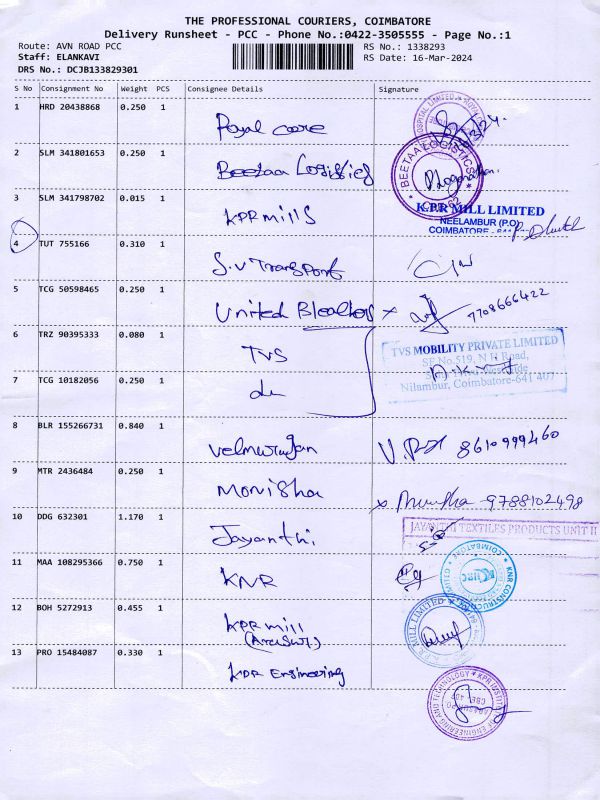 THE PROFESSIONAL COURIERS, COIMBATORE
Delivery Runsheet - PCC - Phone No.:0422-3505555 - Page No.:1
Route: AVN ROAD PCC
RS No.: 1338293
Staff: ELANKAVI
RS Date: 16-Mar-2024
DRS No.: DCJB133829301
S No Consignment No Weight PCS Consignee Details Signature
1 HRD 20438868 0.250 1
Royal care
2 SLM 341801653 0.250 1
Beetaa Logistics
BEETAA LOGISTICS
3 SLM 341798702 0.015 1
KPR mills
K.P.R MILL LIMITED
NEELAMBUR (P.O)
COIMBATORE
4 TUT 755166 0.310 1
S.V Transport
5 TCG 50598465 0.250 1
United Bleachers x 7708666422
6 TRZ 90395333 0.080 1
TVS
TVS MOBILITY PRIVATE LIMITED
SF No.519, N H Road,
Nilambur, Coimbatore-641 407
7 TCG 10182056 0.250 1
do
8 BLR 155266731 0.840 1
Velmurugan 8610999460
9 MTR 2436484 0.250 1
Monisha x 9788102498
10 DDG 632301 1.170 1
Jayanthi
JAYANTHI TEXTILES PRODUCTS UNIT II
11 MAA 108295366 0.750 1
KNR
KNR CONSTRUC
COIMBATORE
12 BOH 5272913 0.455 1
KPR mill
(Arasur)
KPR MILL LIMITED
13 PRO 15484087 0.330 1
KPR Engineering
KPR INSTITUTE OF ENGINEERING AND TECHNOLOGY